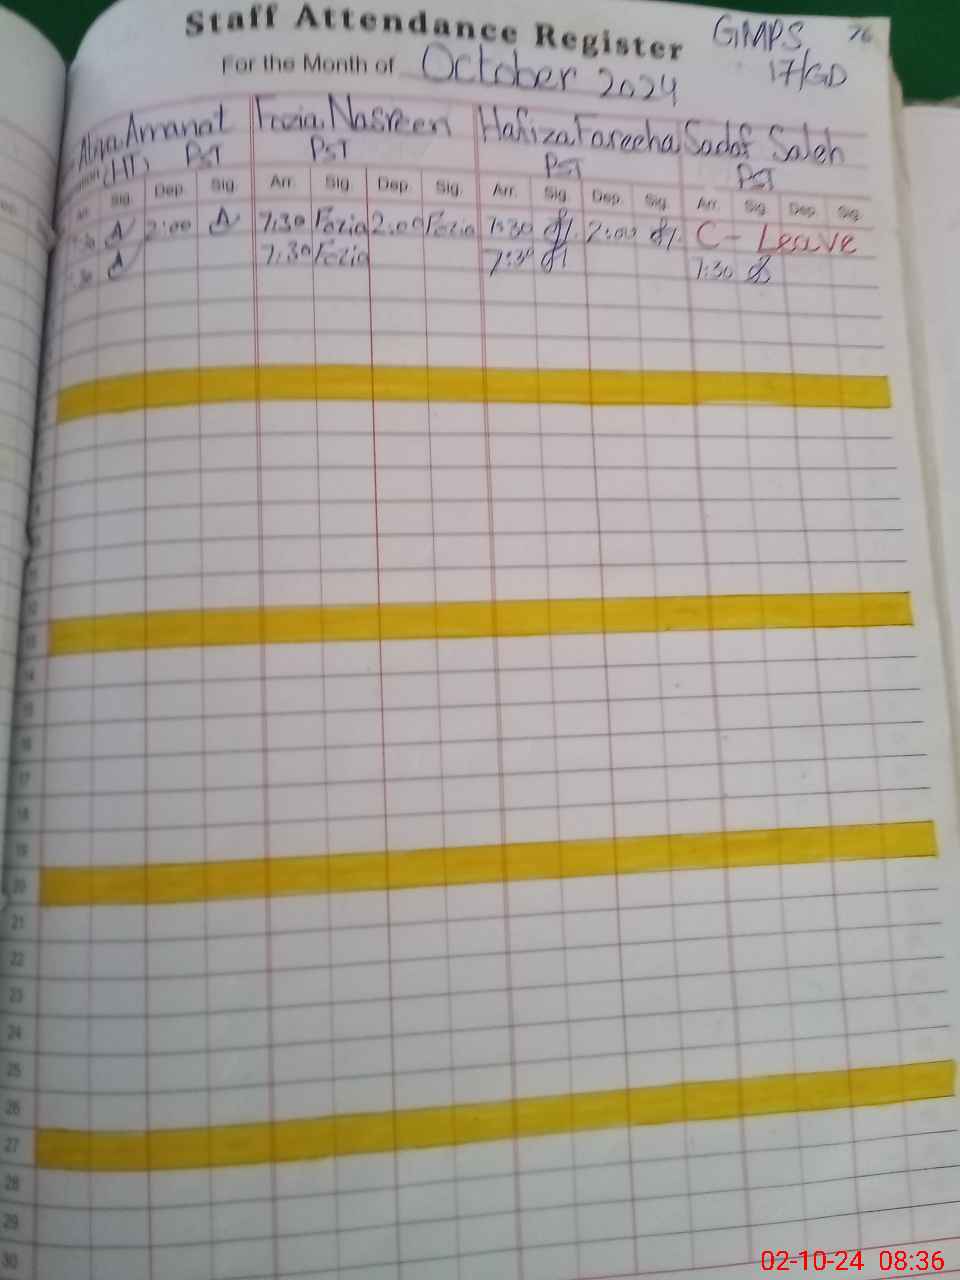 Staff Attendance Register GMPS 76
For the Month of October 2024 17/GD
Amanat Fozia Nasreen Hafiza Fareeha Sadaf Saleh
(HT) PST PST PST PST
Arr. Sig. Dep. Sig. Arr. Sig. Dep. Sig. Arr. Sig. Dep. Sig. Arr. Sig. Dep. Sig.
2:00 7:30 Fozia 2:00 Fozia 7:30 2:00 C- Leave
7:30 Fozia 7:30 7:30
12
13
14
15
16
17
18
19
20
21
22
23
24
25
26
27
28
29
30
02-10-24 08:36